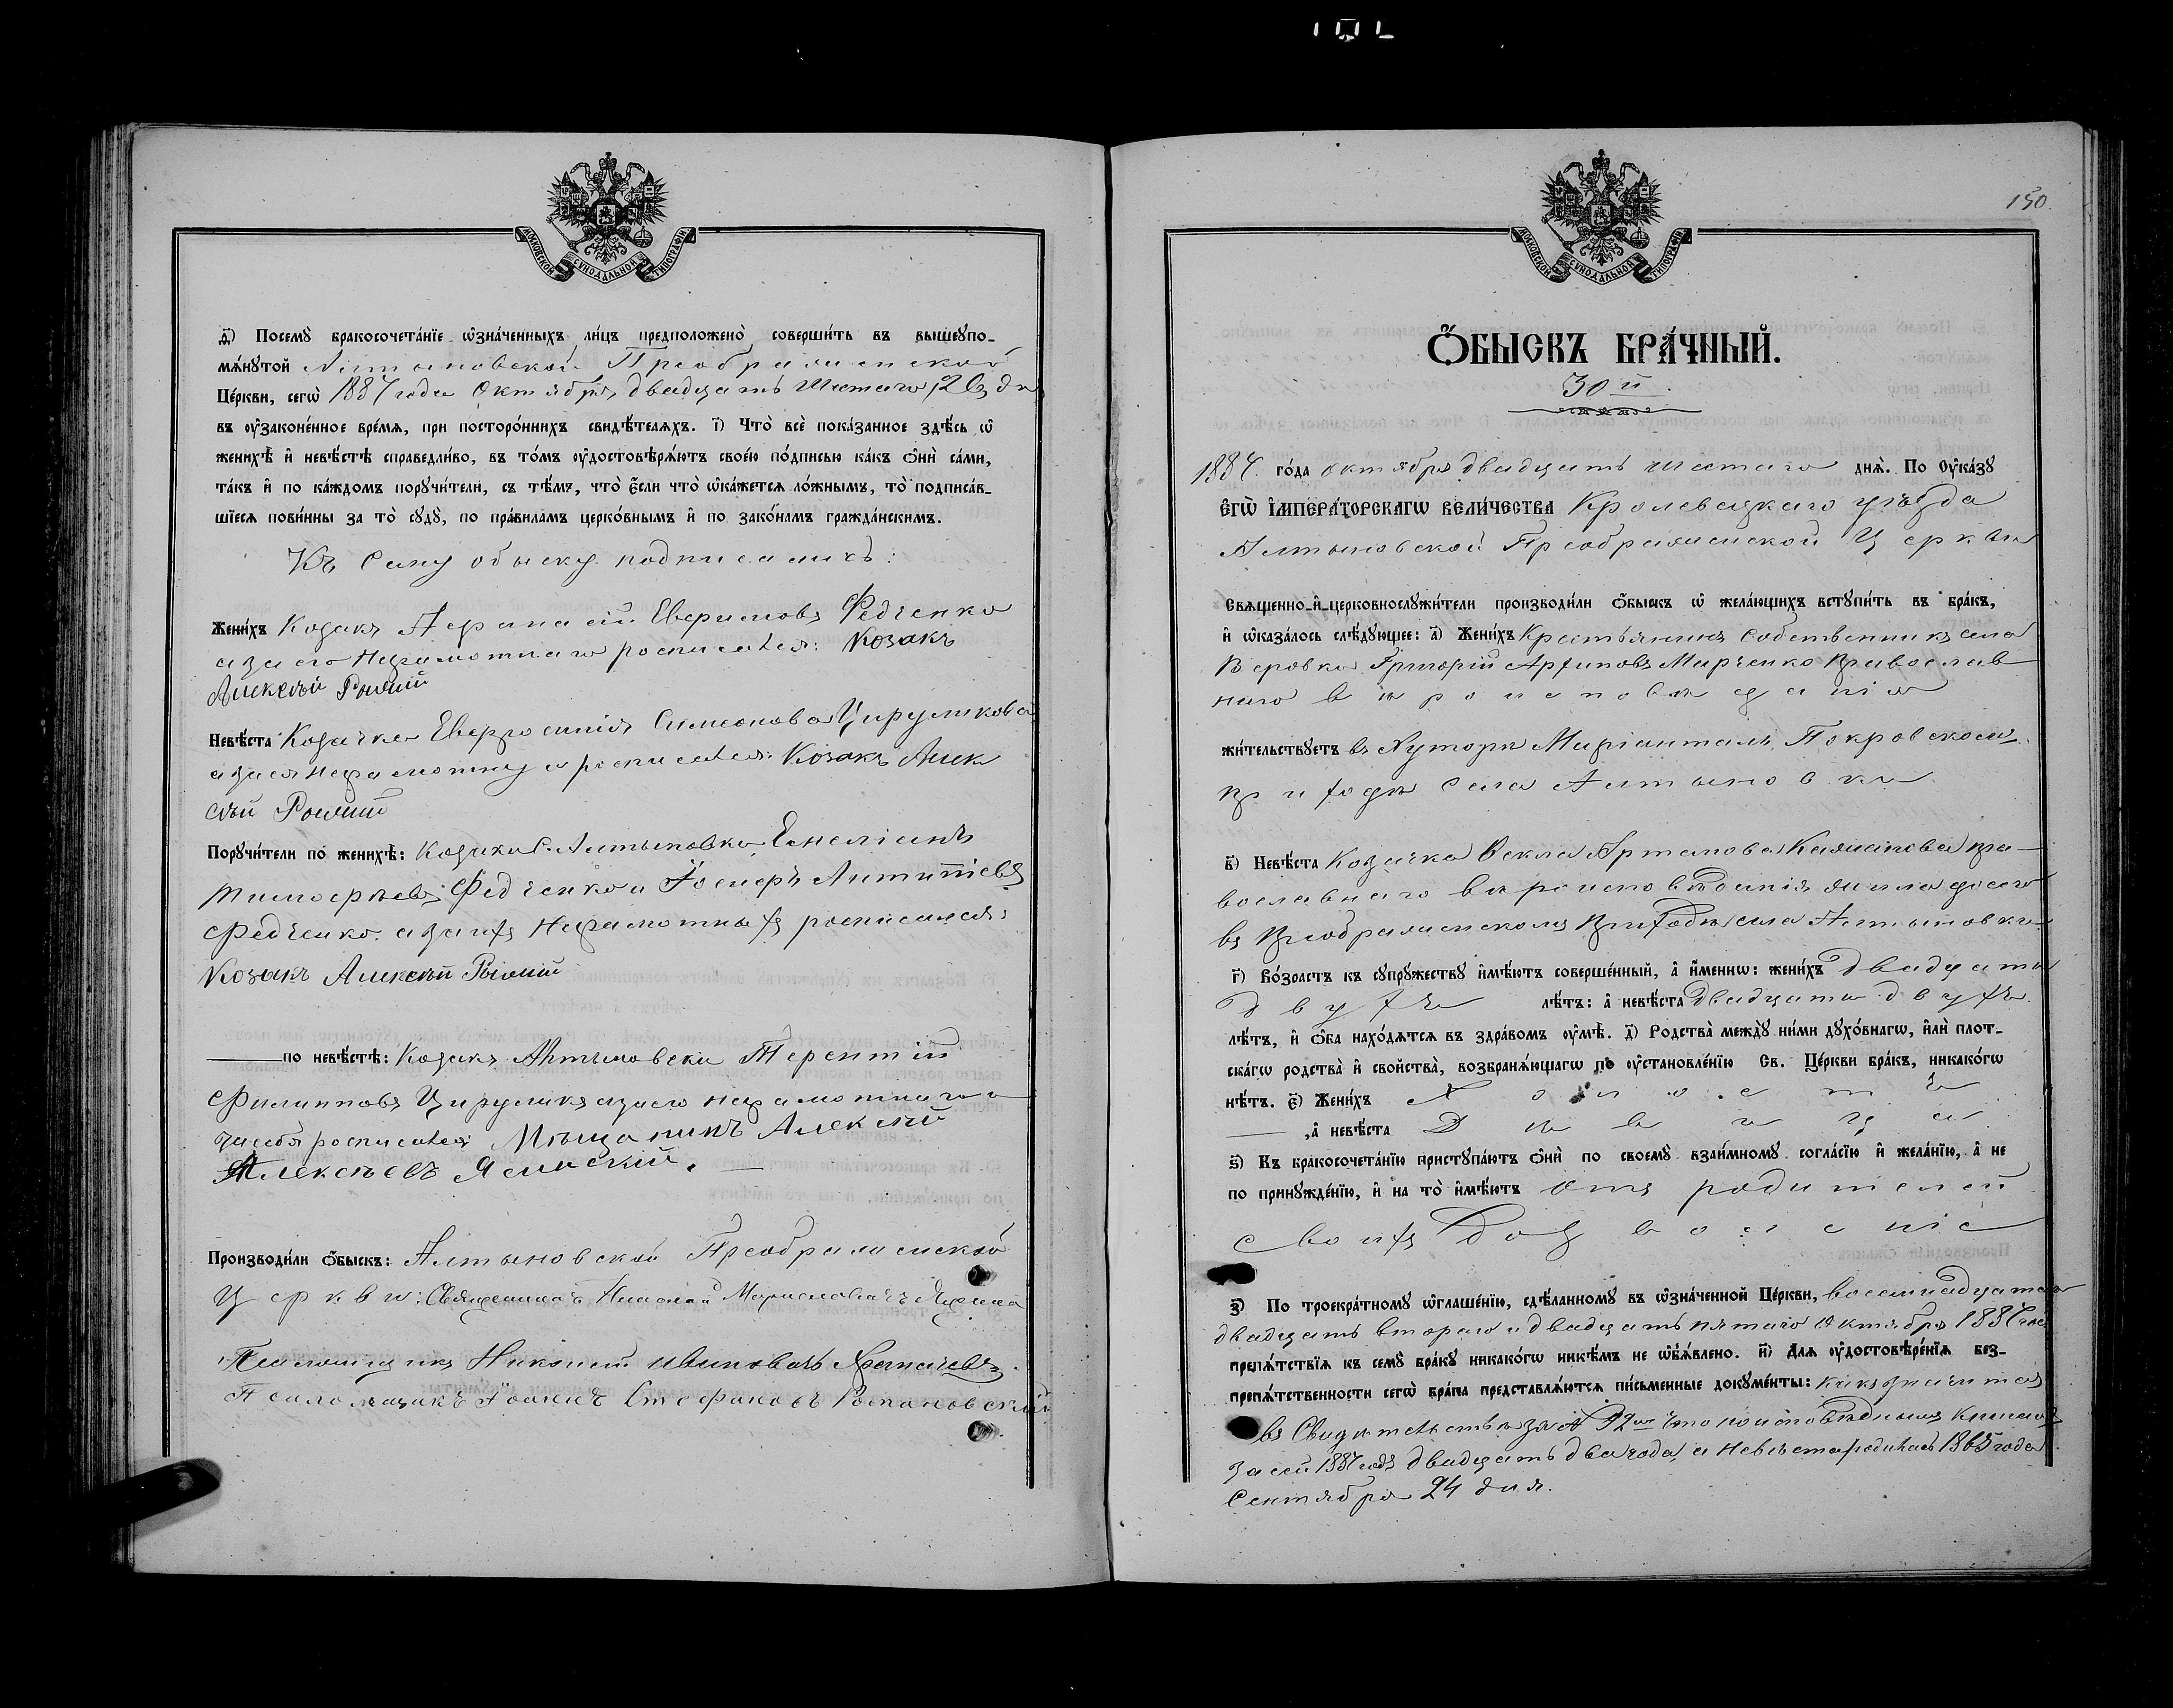 МОСКОВСКОЙ СѴНОДАЛЬНОЙ ТИПОГРАФІИ
д҃і) Посемꙋ̀ бракосочета́нїе ѡ҆зна́ченныхъ ли́цъ предположено̀ соверши́ть въ вышеупо-
мѧ́нꙋтой Алтыновской Преображенской
Це́ркви, сегѡ̀ 1887 года Октября двадцать шестаго /26/ дня
въ ᲂу҆зако́ненное вре́мѧ, при посторо́ннихъ свидѣ́телѧхъ. і҃) Что̀ всѐ пока́занное здѣ́сь ѡ҆
женихѣ̀ и҆ невѣ́стѣ справедли́во, въ то́мъ ᲂу҆достовѣрѧ́ютъ свое́ю по́дписью ка́къ ѻ҆нѝ са́ми,
та́къ и҆ по ка́ждомъ порꙋчи́тели, съ тѣ́мъ, что̀ є҆́сли что̀ ѡ҆ка́жетсѧ ло́жнымъ, то̀ подписа́в-
шїесѧ пови́нны за то̀ сꙋдꙋ̀, по пра́виламъ церко́внымъ и҆ по зако́намъ гражда́нскимъ.
Къ сему обыску подписались:
Жени́хъ Козакъ Афанасій Федченко
а за его неграмотнаго росписался: Козакъ
Алексѣй
Невѣ́ста Козачка Евфросинія Симеонова Цируликова
а за ея неграмотную росписался: Козакъ Алек
сѣй
Порꙋчи́тели по женихѣ̀: Козаки с. Алтыновки Емеліанъ
Тимофѣевъ Федченко и Іосифъ Антиповъ
Федченко, а за ихъ неграмотныхъ росписался:
Козакъ Алексѣй
по невѣ́стѣ: Козакъ Алтыновки Терентій
Филипповъ Цируликъ а за его неграмотнаго
росписался: Мѣщанинъ Алексѣй
Алексѣевъ Ясинскій.
Производи́ли ѻ҆́быскъ: Алтыновской Преображенской
Церкви: Священникъ Николай
Псаломщикъ
Псаломщикъ Іоаннъ Стефановъ Романовскій
150.
МОСКОВСКОЙ СѴНОДАЛЬНОЙ ТИПОГРАФІИ
Ѻ҆́БЫСКЪ БРА́ЧНЫЙ.
30й
1887 го́да октября двадцать шестаго днѧ̀. По ᲂу҆ка́зꙋ
є҆гѡ̀ і҆мпера́торскагѡ вели́чества Кролевецкаго уѣзда
Алтыновской Преображенской Церкви
Свѧщенно-и҆-церковнослꙋжи́тели производи́ли ѻ҆́быскъ ѡ҆ жела́ющихъ встꙋпи́ть въ бра́къ,
и҆ ѡ҆каза́лось слѣ́дꙋющее: а҃) Жени́хъ Крестьянинъ собственникъ села
Григорій Марченко Православ
наго вѣроисповѣданія
жи́тельствꙋетъ въ Хуторѣ Маріенталь, Покровскомъ
приходѣ села Алтыновки
в҃) Невѣ́ста Козачка Ѳекла Артемова пра-
вославнаго вѣроисповѣданія жила досего
въ Преображенскомъ приходѣ села Алтыновки
г҃) Во́зрастъ къ сꙋпрꙋ́жествꙋ и҆мѣ́ютъ соверше́нный, а҆ и҆́менно: жени́хъ двадцати
двухъ лѣ́тъ: а҆ невѣ́ста двадцати двухъ
лѣ́тъ, и҆ ѻ҆́ба нахо́дѧтсѧ въ здра́вомъ ᲂу҆мѣ̀. д҃) Родства̀ междꙋ̀ ни́ми дꙋхо́внагѡ, и҆лѝ плот-
ска́гѡ родства̀ и҆ сво́йства, возбранѧ́ющагѡ по ᲂу҆становле́нїю Св. Це́ркви бра́къ, никако́гѡ
нѣ́тъ. є҃) Жени́хъ Холостъ
, а҆ невѣ́ста Дѣвица
ѕ҃) Къ бракосочета́нїю пристꙋпа́ютъ ѻ҆нѝ по своемꙋ̀ взаи́мномꙋ согла́сїю и҆ жела́нїю, а҆ не
по принꙋжде́нїю, и҆ на то̀ и҆мѣ́ютъ отъ родителей
своихъ дозволеніе
з҃) По троекра́тномꙋ ѡ҆глаше́нїю, сдѣ́ланномꙋ въ ѡ҆зна́ченной Це́ркви, восемнадцатаго
двадцать втораго и двадцать пятаго октября 1887 года
препѧ́тствїѧ къ семꙋ̀ бра́кꙋ никако́гѡ никѣ́мъ не ѡ҆б̾ѧ́влено. и҃) Длѧ ᲂу҆достовѣре́нїѧ без-
препѧ́тственности сегѡ̀ бра́ка представлѧ́ютсѧ пи́сьменные докꙋме́нты: какъ значится
въ Свидѣтельствѣ за № 92 что по исповѣднымъ книгамъ
за сей 1887 годъ двадцать два года, а невѣста родилась 1865 года
Сентября 24 дня.